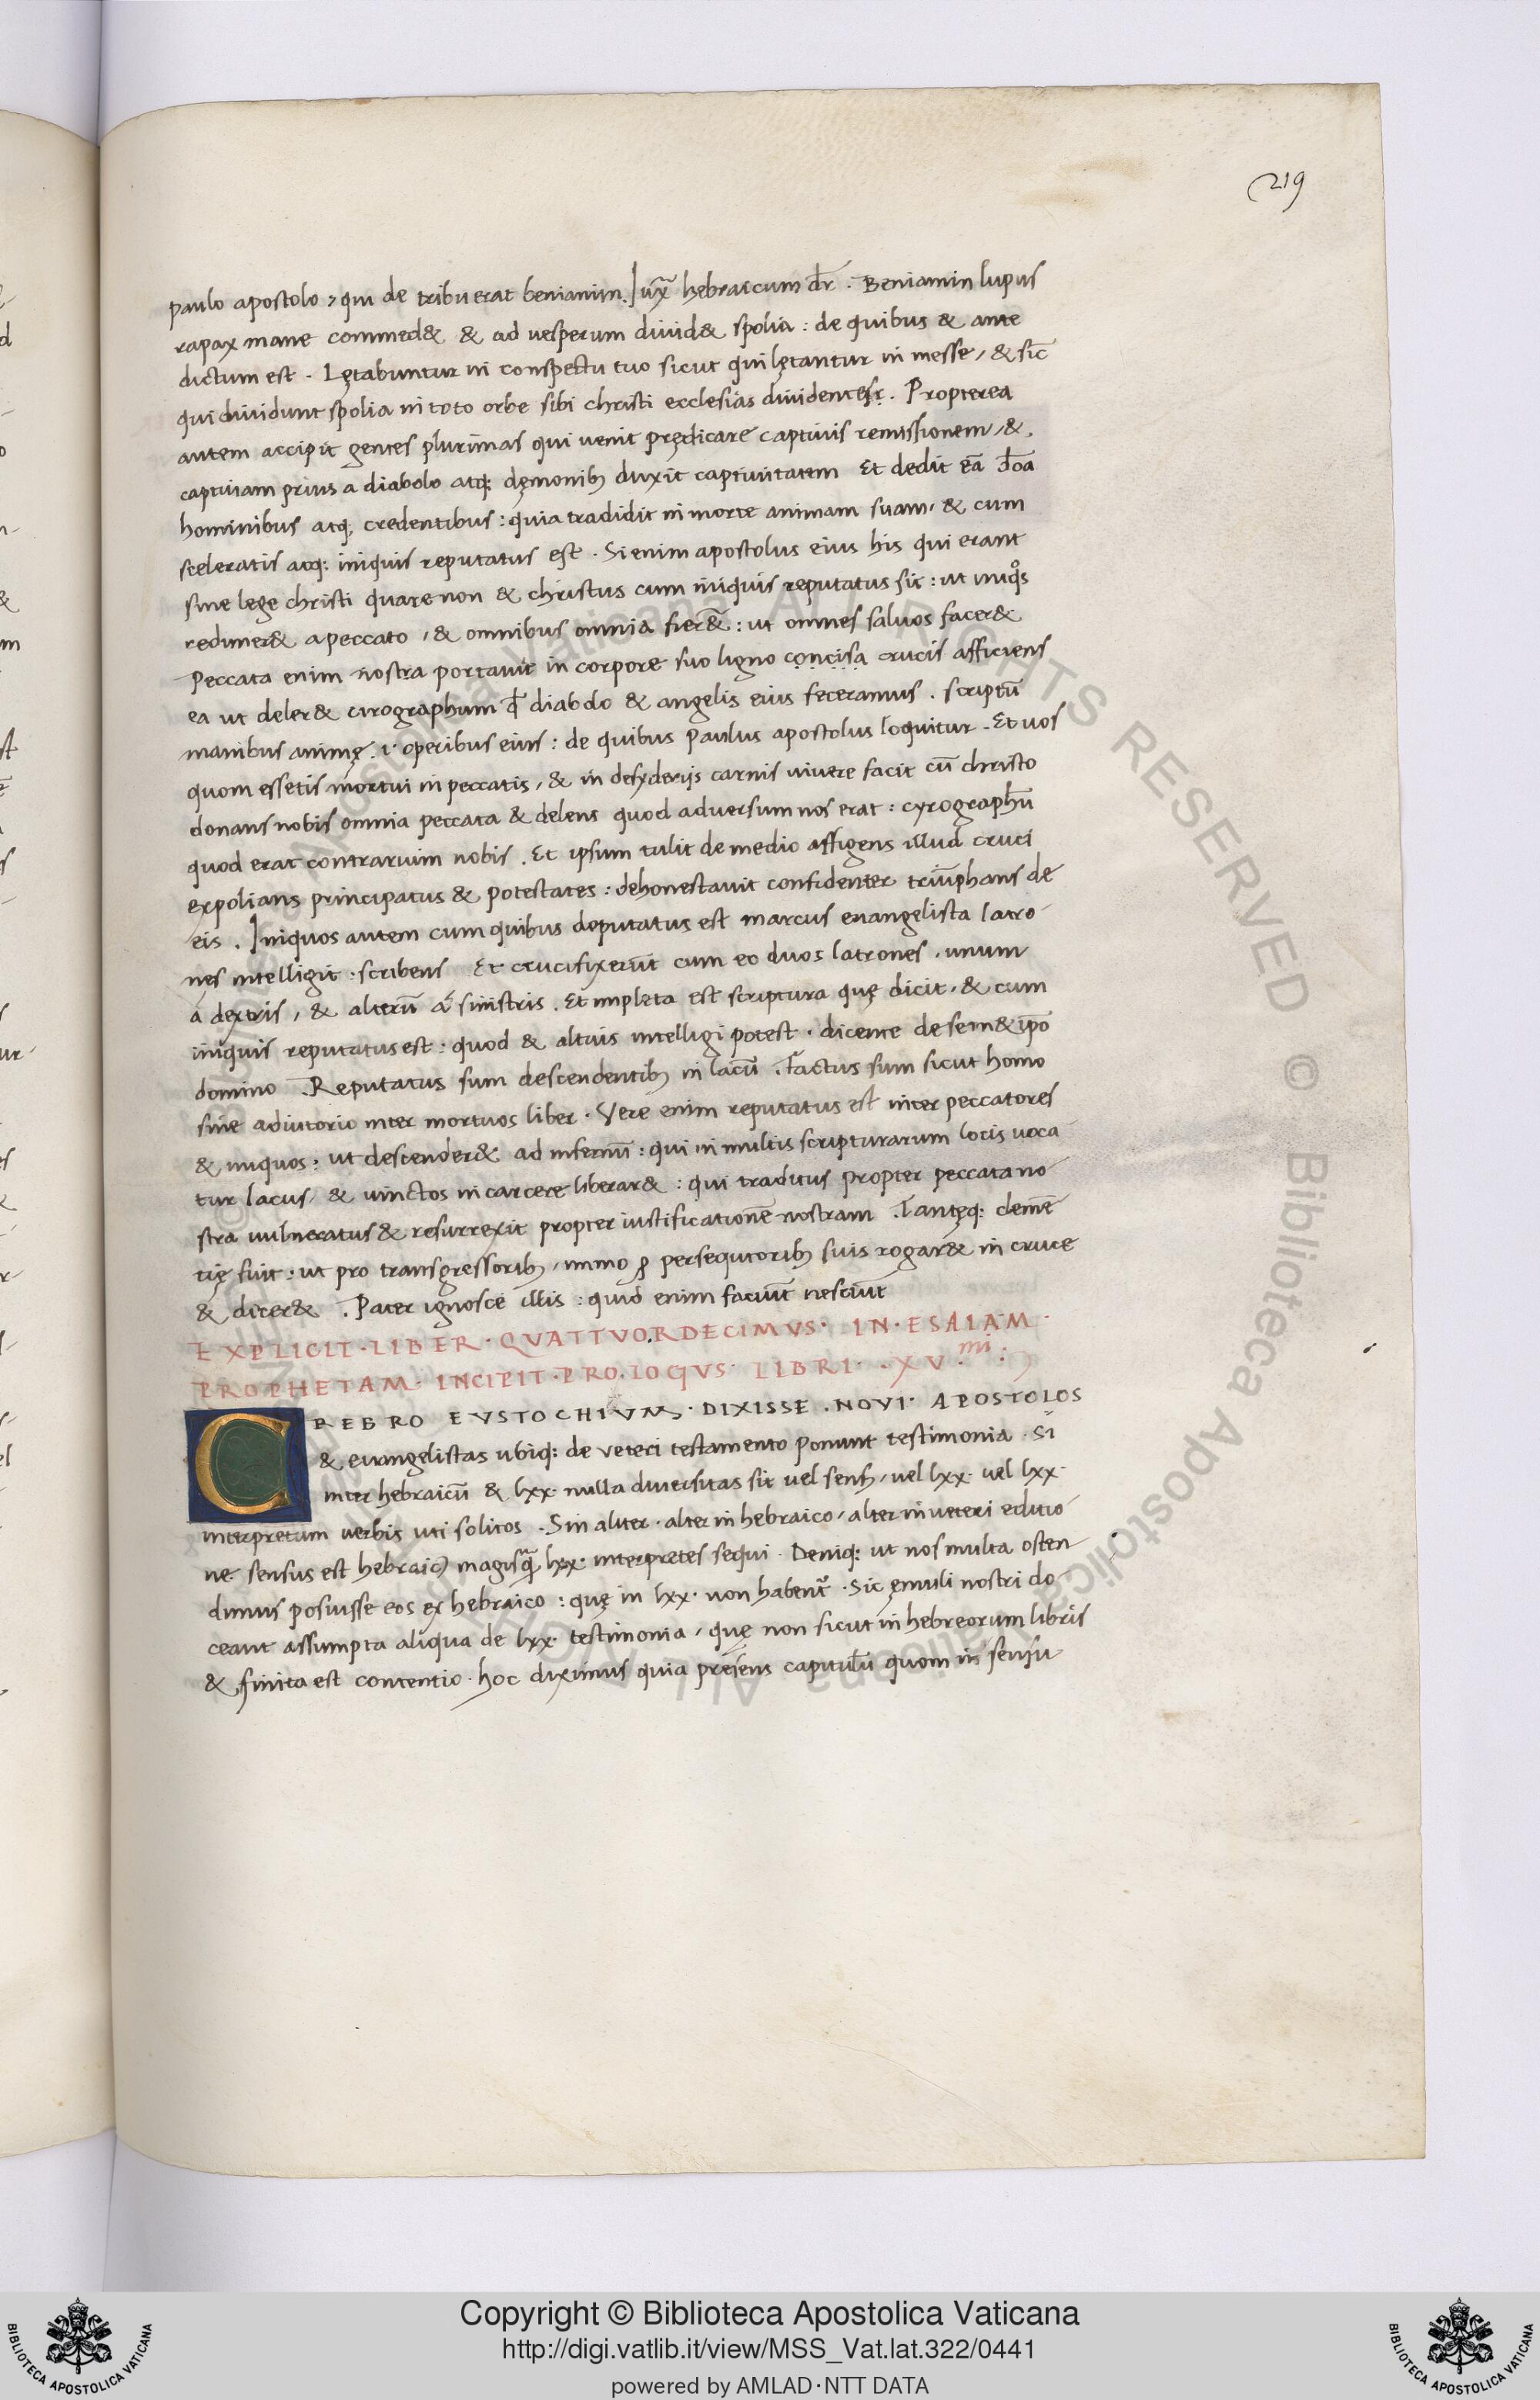 219
paulo apostolo, qui de tribu erat beniamin. Iuxͣ hebraicum dr̄. Beniamin lupus
rapax mane commed& & ad uesperum diuid& spolia : de quibus & ante
dictum est. Lętabuntur in conspectu tuo sicut qui lętantur in messe, & sic̄
qui diuidunt spolia in toto orbe sibi christi ecclesias diuidentes. Propterea
autem accipit gentes plurimas qui uenit prędicare captiuis remissionem, &
captiuam prius a diabolo atq: dęmonib; duxit captiuitatem Et dedit eā
hominibus atq, credentibus : quia tradidit in morte animam suam, & cum
sceleratis atq: iniquis reputatus est. Si enim apostolus eius his qui erant
sine lege christi quare non & christus cum iniquis reputatus sit : ut iniqͦs
redimer& a peccato, & omnibus omnia fier& : ut omnes saluos facer&
Peccata enim nostra portauit in corpore suo ligno concisa crucis afficiens
ea ut deler& cirographum qd̄ diabolo & angelis eius feceramus. scriptū
manibus animę .i. operibus eius : de quibus Paulus apostolus loquitur. Et uos
quom essetis mortui in peccatis, & in desyderijs carnis uiuere facit cū christo
donans nobis omnia peccata & delens quod aduersum nos erat : cyrographū
quod erat contrarium nobis. Et ipsum tulit de medio affigens illud cruci
expolians principatus & potestates : dehonestauit confidenter triūphans de
eis. Iniquos autem cum quibus deputatus est marcus euangelista latro
nes intelligit : scribens Et crucifixerūt cum eo duos latrones, unum
a dextris, & alterū a sinistris. Et impleta est scriptura quę dicit, & cum
iniquis reputatus est : quod & altius intelligi potest. dicente de sem& ipo
domino. Reputatus sum descendentib; in lacū. Factus sum sicut homo
sine adiutorio inter mortuos liber. Vere enim reputatus est inter peccatores
& iniquos, ut descender& ad infernū : qui in multis scripturarum locis uoca
tur lacus, & uinctos in carcere liberar& : qui traditus propter peccata no
stra uulneratus & resurrexit propter iustificationē nostram. Tantęq: demē
tię fuit : ut pro transgressorib; immo ꝓ persequtorib; suis rogar& in cruce
& dicer&. Pater ignosce illis : quid enim faciūt nesciūt
EXPLICIT · LIBER · QVATTVORDECIMVS · IN · ESAIAM ·
PROPHETAM · INCIPIT · PROLOGVS · LIBRI · XV mi :
CREBRO EVSTOCHIVM · DIXISSE · NOVI · APOSTOLOS
& euangelistas ubiq: de veteri testamento ponunt testimonia. Si
inter hebraicū & lxx. nulla diuersitas sit uel sens; uel lxx. uel lxx.
interpretum verbis uti solitos. Sin aliter. alter in hebraico, alter in ueteri editio
ne sensus est hebraic) magisqͣ lxx. interpretes sequi. Deniq: ut nos multa osten
dimus posuisse eos ex hebraico : quę in lxx. non habent᷑. Sic ęmuli nostri do
ceant assumpta aliqua de lxx. testimonia, quę non sicut in hebreorum libris
& finita est contentio. hoc diximus quia presens capitulū quom in sensu
Copyright © Biblioteca Apostolica Vaticana
http://digi.vatlib.it/view/MSS_Vat.lat.322/0441
powered by AMLAD·NTT DATA
BIBLIOTECA APOSTOLICA VATICANA
BIBLIOTECA APOSTOLICA VATICANA